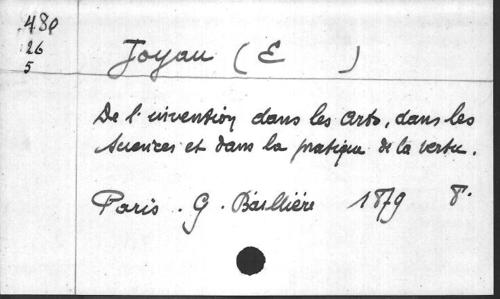 480
26
5
Joyau (E )
De l'invention dans les arts, dans les
sciences et dans la pratique de la vertu.
Paris. G. Baillière 1879 8°.